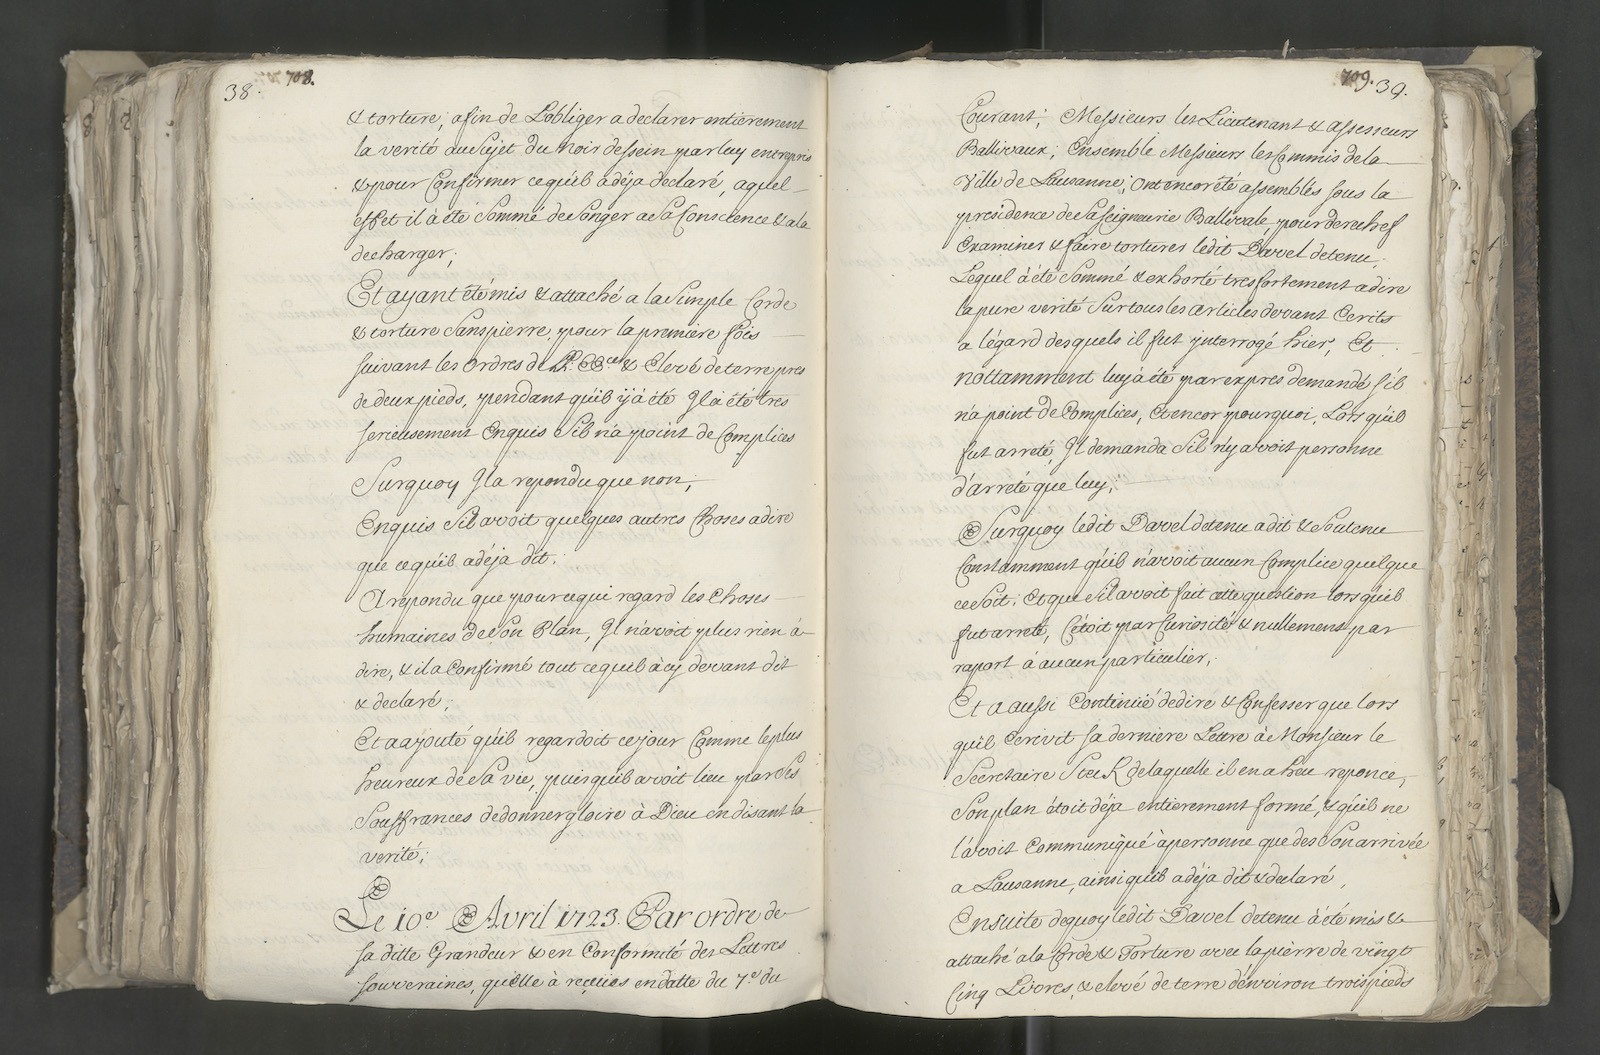 38.
708.
& torture, afin de L'obliger a declarer entierement
la verité au Sujet du noir dessein par luy entrepris
& pour Confirmer ce qu'il a déja declaré, a quel
effet il à été Sommé de Songer a Sa Conscience & a la
decharger;
Et ayant été mis & attaché a la Simple Corde
& torture Sans pierre, pour la premiere fois
suivant les Ordres de & Elevé de terre pres
de deux pieds, pendant qu'il y à été Il a été tres
serieusement Enquis S'il n'a point de Complices
Surquoy Il a repondu que non;
Enquis S'il avoit quelques autres Choses a dire
que ce qu'il a déja dit;
A repondu que pour ce qui regard les Choses
humaines de Son Plan, Il n'avoit plus rien à
dire, & il a Confirmé tout ce qu'il à cy devant dit
& declaré;
Et a ajouté qu'il regardoit ce jour Comme le plus
heureux de Sa vie, puis qu'il avoit lieu par Ses
Souffrances de donner gloire à Dieu en disant la
verité;
Le 10.e Avril 1723. Par ordre de
sa ditte Grandeur & en Conformité des Lettres
souveraines, qu'Elle à reçeües en datte du 7.e du
709.
39.
Courant; Messieurs les Lieutenant & assesseurs
Ballivaux; Ensemble Messieurs les Commis de la
Ville de Lausanne; ont encor été assemblés sous la
presidence de Sa Seigneurie Ballivale, pour derechef
Examiner & faire torturer ledit Davel detenu,
Lequel à été Sommé & exhorté tres fortement a dire
la pure verité Sur tous les articles devant Ecrits
a l'égard desquels il fut ynterrogé hier, Et
nottamment luy à été par expres demandé s'il
n'a point de Complices, Et encor pourquoi, Lors qu'il
fut arreté, Il demanda S'il n'y avoit personne
d'arreté que luy;
Surquoy ledit Davel detenu a dit & Soutenu
Constamment qu'il n'avoit aucun Complice quelque
ce Soit; Et que S'il avoit fait cette question lors qu'il
fut arreté, C'étoit par Curiosité & nullement par
raport à aucun particulier;
Et a aussi Continüé de dire & Confesser que lors
qu'il Ecrivit sa derniere Lettre à Monsieur le
Secretaire de laquelle il en a heu reponce,
Son plan étoit déja entierement formé, & qu'il ne
l'avoit Communiqué à personne que des Son arrivée
a Lausanne, ainsi qu'il a déja dit & declaré,
Ensuite de quoy ledit Davel detenu à été mis &
attaché a la Corde & Torture avec la pierre de vingt
Cinq Livres, & elevé de terre d'environ trois pieds